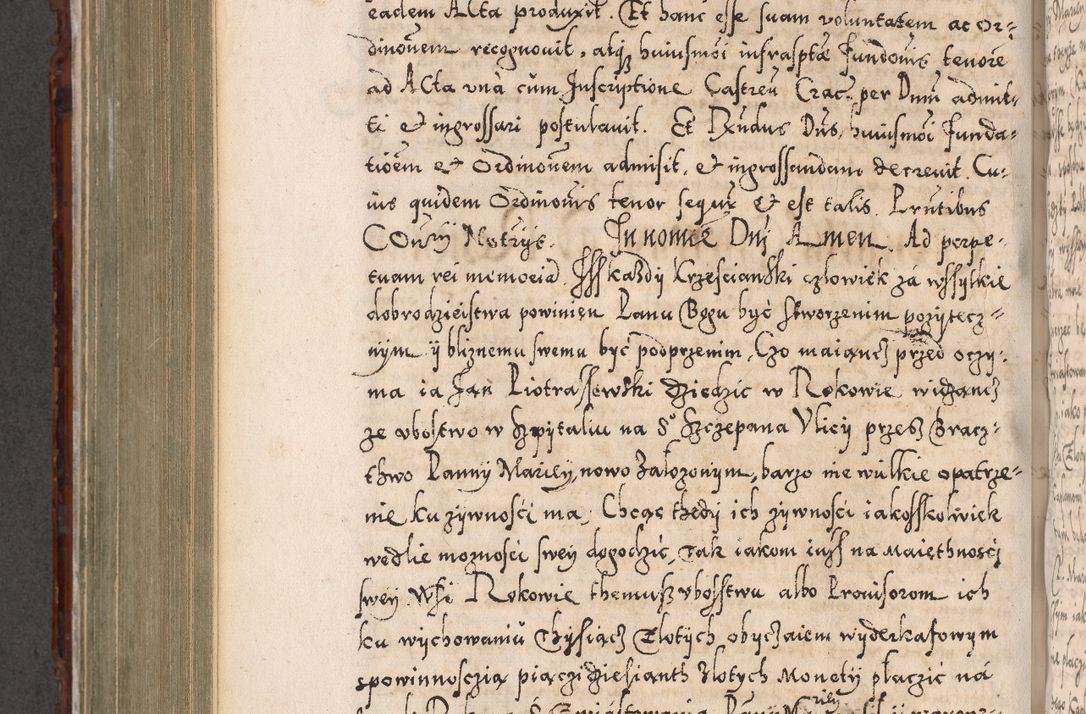 eadem Acta produxit. Et hanc esse suam voluntatem ac or=
dinõem recognouit, atq̨ huiusmõi infrasptæ Fundõnis tenorẽ
ad Acta vnà cũm Inscriptione Castreñ Crac. per Dnũ admit=
ti et ingrossari postulauit. Et Rñdus Dñs, huiusmõi funda=
tiõem et Ordinõnem admisit, et ingrossandam decreuit. Cu=
ius quidem Ordinõnis tenor sequr̃ et est talis. Prñtibus
In nomiẽ Dnj Amen. Ad perpe=
tuam rei memoriã. Jssz kazdy Krzesciański człowiek zá wssytkie
dobrodzieistwa powinien Panu Bogu być stworzeniem pozytecz=
nym y blizniemu swemu być podprzeniem, Czo maiącz przed oczy=
ma ia Jan Piotrassewski dziedzic w Rokowie widzącz
ze vbostwo w Szpytaliu na S. Szczepana Vlicy przesz Bracz=
thwo Panny Mariey, nowo załozonym, barzo nie wielkie opatrze=
nie ku zywności ma, Chcąc thedy ich zywności iakosskolwiek
wedlie mozności swey dogodzic, Tak iakom iussz na Maiethności
swey Wsi Rokowie themusz vbosstwu albo Prouisorom ich
ku wychowaniu Thysiącz Złotych obyczaiem wyderkafowym
spowinnosczią piąćzidziesianth złotych Monety płaczić ná